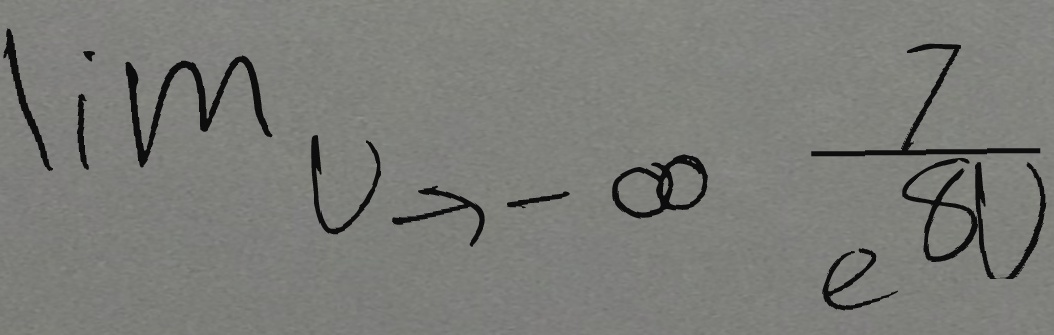 \lim_{v \to -\infty} \frac{7}{e^{8v}}